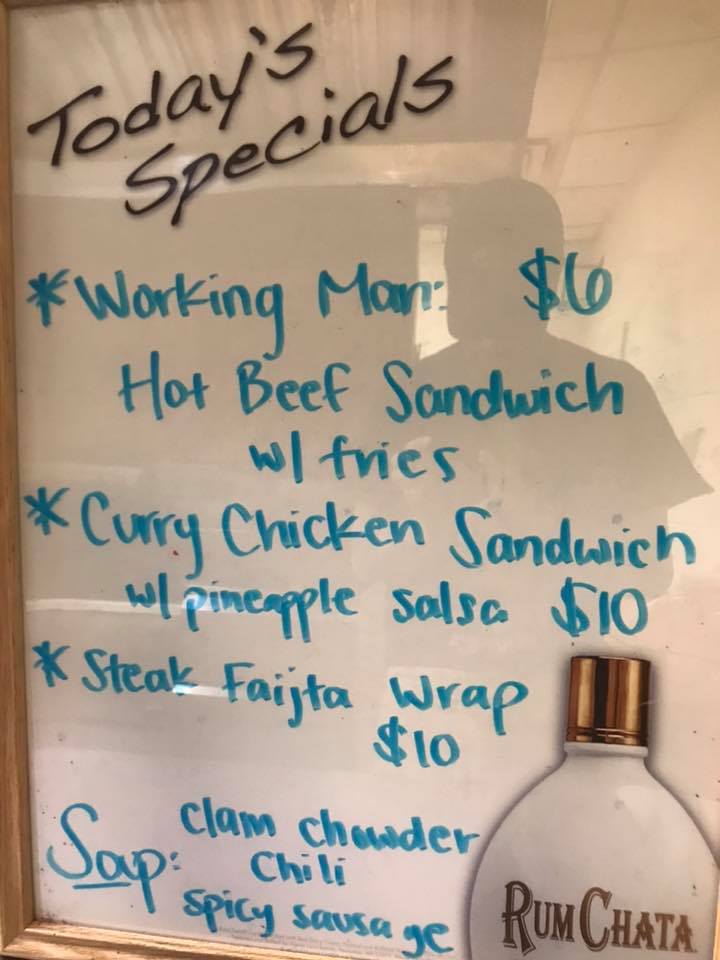 Today's
Specials
* Working Man: $6
Hot Beef Sandwich
w/ fries
* Curry Chicken Sandwich
w/ pineapple salsa $10
* Steak Faijta Wrap
$10
Soup: clam chowder
Chili
spicy sausage
RUMCHATA